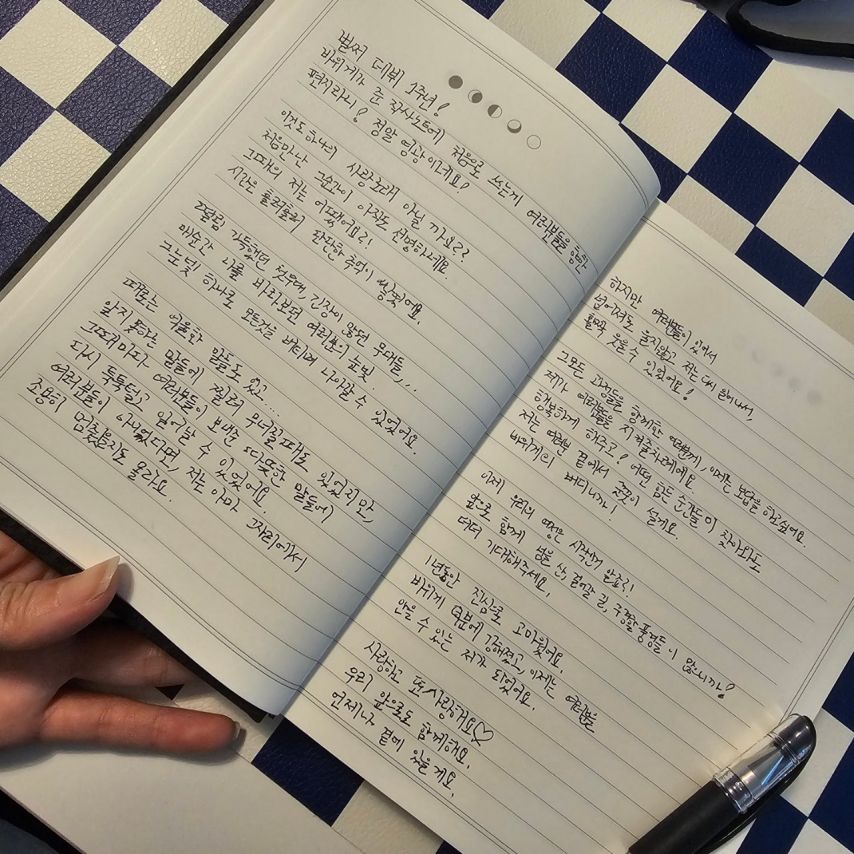 벌써 데뷔 1주년!
바위게가 준 작사노트에 처음으로 쓰는게 여러분들을 향한
편지라니! 정말 영광이네요!
이것도 하나의 사랑노래 아닐까요??
처음만난 그순간이 아직도 선명하네요.
그때의 저는 어땠어요?!
시간은 흘러흘러 단단한 추억이 쌓였어요.
떨림 가득했던 첫무대, 긴장이 많던 무대들,,,
매순간 나를 바라보던 여러분의 눈빛
그눈빛 하나로 모든것을 버티며 나아갈 수 있었어요.
때로는 억울한 말들도 있고...
알지못하는 말들에 찔려 무너질때도 있었지만,
그때마다 여러분들이 보내준 따뜻한 말들에
다시 툭툭털고 일어날 수 있었어요.
여러분들이 아니었다면, 저는 아마 그자리에서
조용히 멈췄을지도 몰라요.
하지만 여러분들이 있어서
넘어져도 울지않고 저는 다시 일어나서,
활짝 웃을 수 있었어요!
그모든 과정들을 함께한 여러분께, 이제는 보답을 하고싶어요.
제가 여러분들을 지켜줄차례에요.
행복하게 해주고! 어떤 힘든 순간들이 찾아와도
저는 여러분 곁에서 굳굳이 설게요.
바위게의 버디니까!
이제 우리의 여정은 시작인거 알죠?!
앞으로 함께 넘을 산, 걸어갈 길, 구경할 풍경들이 많으니까!
더더 기대해주세요.
1년동안 진심으로 고마웠어요.
바위게 덕분에 강해졌고, 이제는 여러분을
안을 수 있는 제가 되었어요.
사랑하고 또 사랑해요♡
우리 앞으로도 함께해요.
언제나 곁에 있을게요.